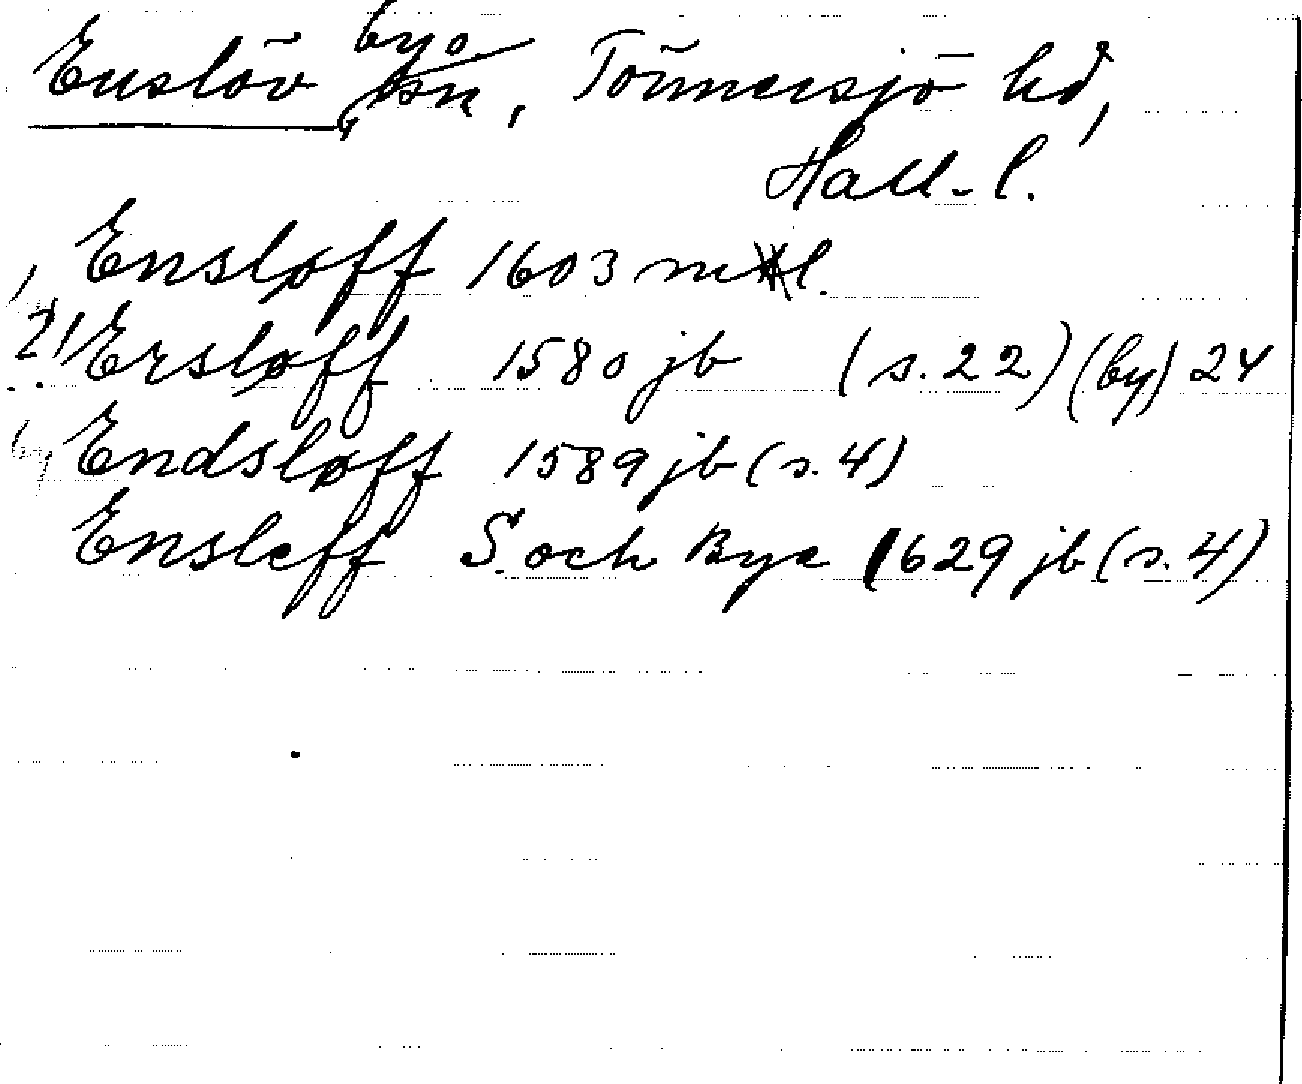 Enslöv by o. sn, Tönnersjö hd,
Hall-l.
1, Ensløff 1603 mtl.
2, Ersløff 1580 jb (s. 22) (by) 24
by Endsløff 1589 jb (s. 4)
Ensleff S. och Bye 1629 jb (s. 4)